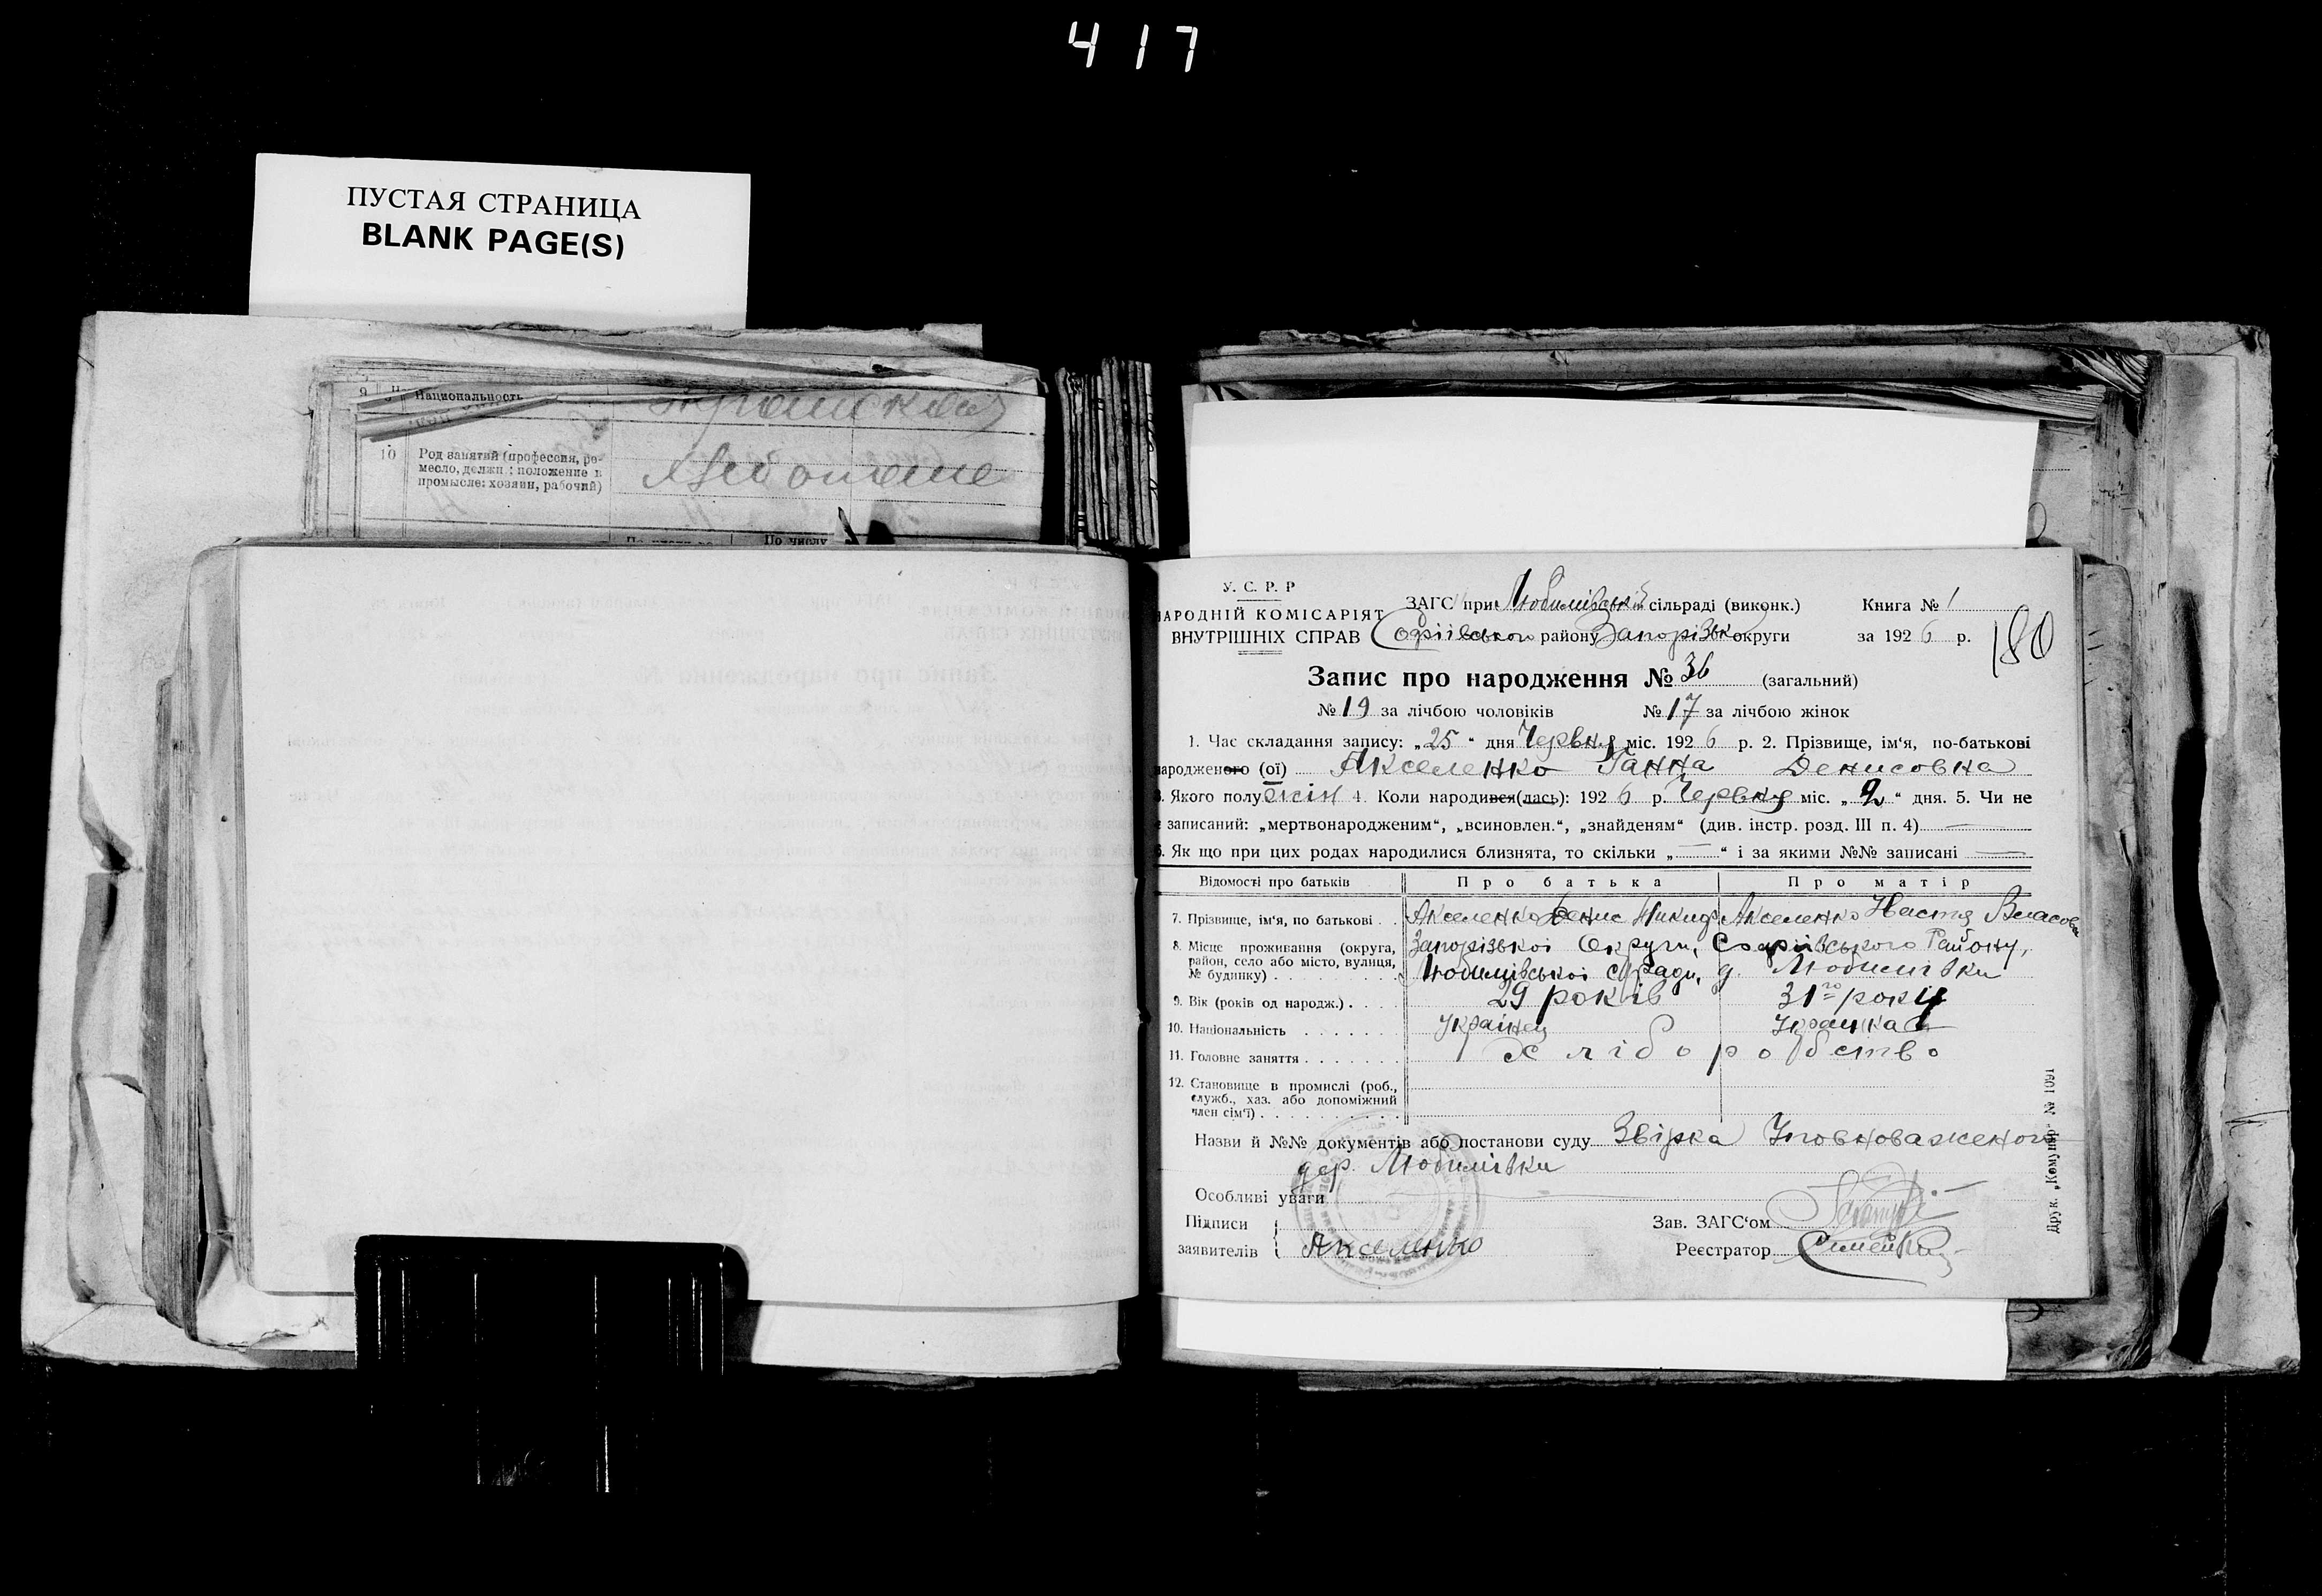 417
ПУСТАЯ СТРАНИЦА
BLANK PAGE(S)
9 Национальность
10 Род занятий (профессия, ре-
месло, должн.: положение в
промысле: хозяин, рабочий)
По числу
У. С. Р. Р
НАРОДНІЙ КОМІСАРІЯТ
ВНУТРІШНІХ СПРАВ
ЗАГС при Любимівській сільраді (виконк.) Книга № 1
Софіівського району Запорізько округи за 1926 р.
180
Запис про народження № 36 (загальний)
№ 19 за лічбою чоловіків № 17 за лічбою жінок
1. Час складання запису: „25“ дня Червня міс. 1926 р. 2. Прізвище, ім‘я, по-батькові
народженого (ої) Акселенко Ганна Денисовна
3. Якого полу жін 4. Коли народився(лась): 1926 р. Червня міс. „2“ дня. 5. Чи не
записаний: „мертвонародженим“, „всиновлен.“, „знайденям“ (див. інстр. розд. III п. 4)
6. Як що при цих родах народилися близнята, то скільки „—“ і за якими №№ записані —
Відомості про батьків Про батька Про матір
7. Прізвище, ім‘я, по батькові . . Акселенко Денис Никид. Акселенко Настя Власов
8. Місце проживання (округа, район, село або місто, вулиця, № будинку) Запорізькоі Округи, Софіівського Району,
Любимівськоі с/ради, д. Любимівки
9. Вік (років од народж.) . . . 29 років 31го року
10. Національність Украінец Украинка
11. Головне заняття Хліборобство
12. Становище в промислі (роб.,
служб., хаз. або допоміжний
член сім‘ї)
Назви й №№ документів або постанови суду Звірка Уповноваженого
дер. Любимівки
Особливі уваги
Підписи
заявителів Акселенко
Зав. ЗАГС‘ом
Реєстратор
Друк. „Комунар“ № 1091